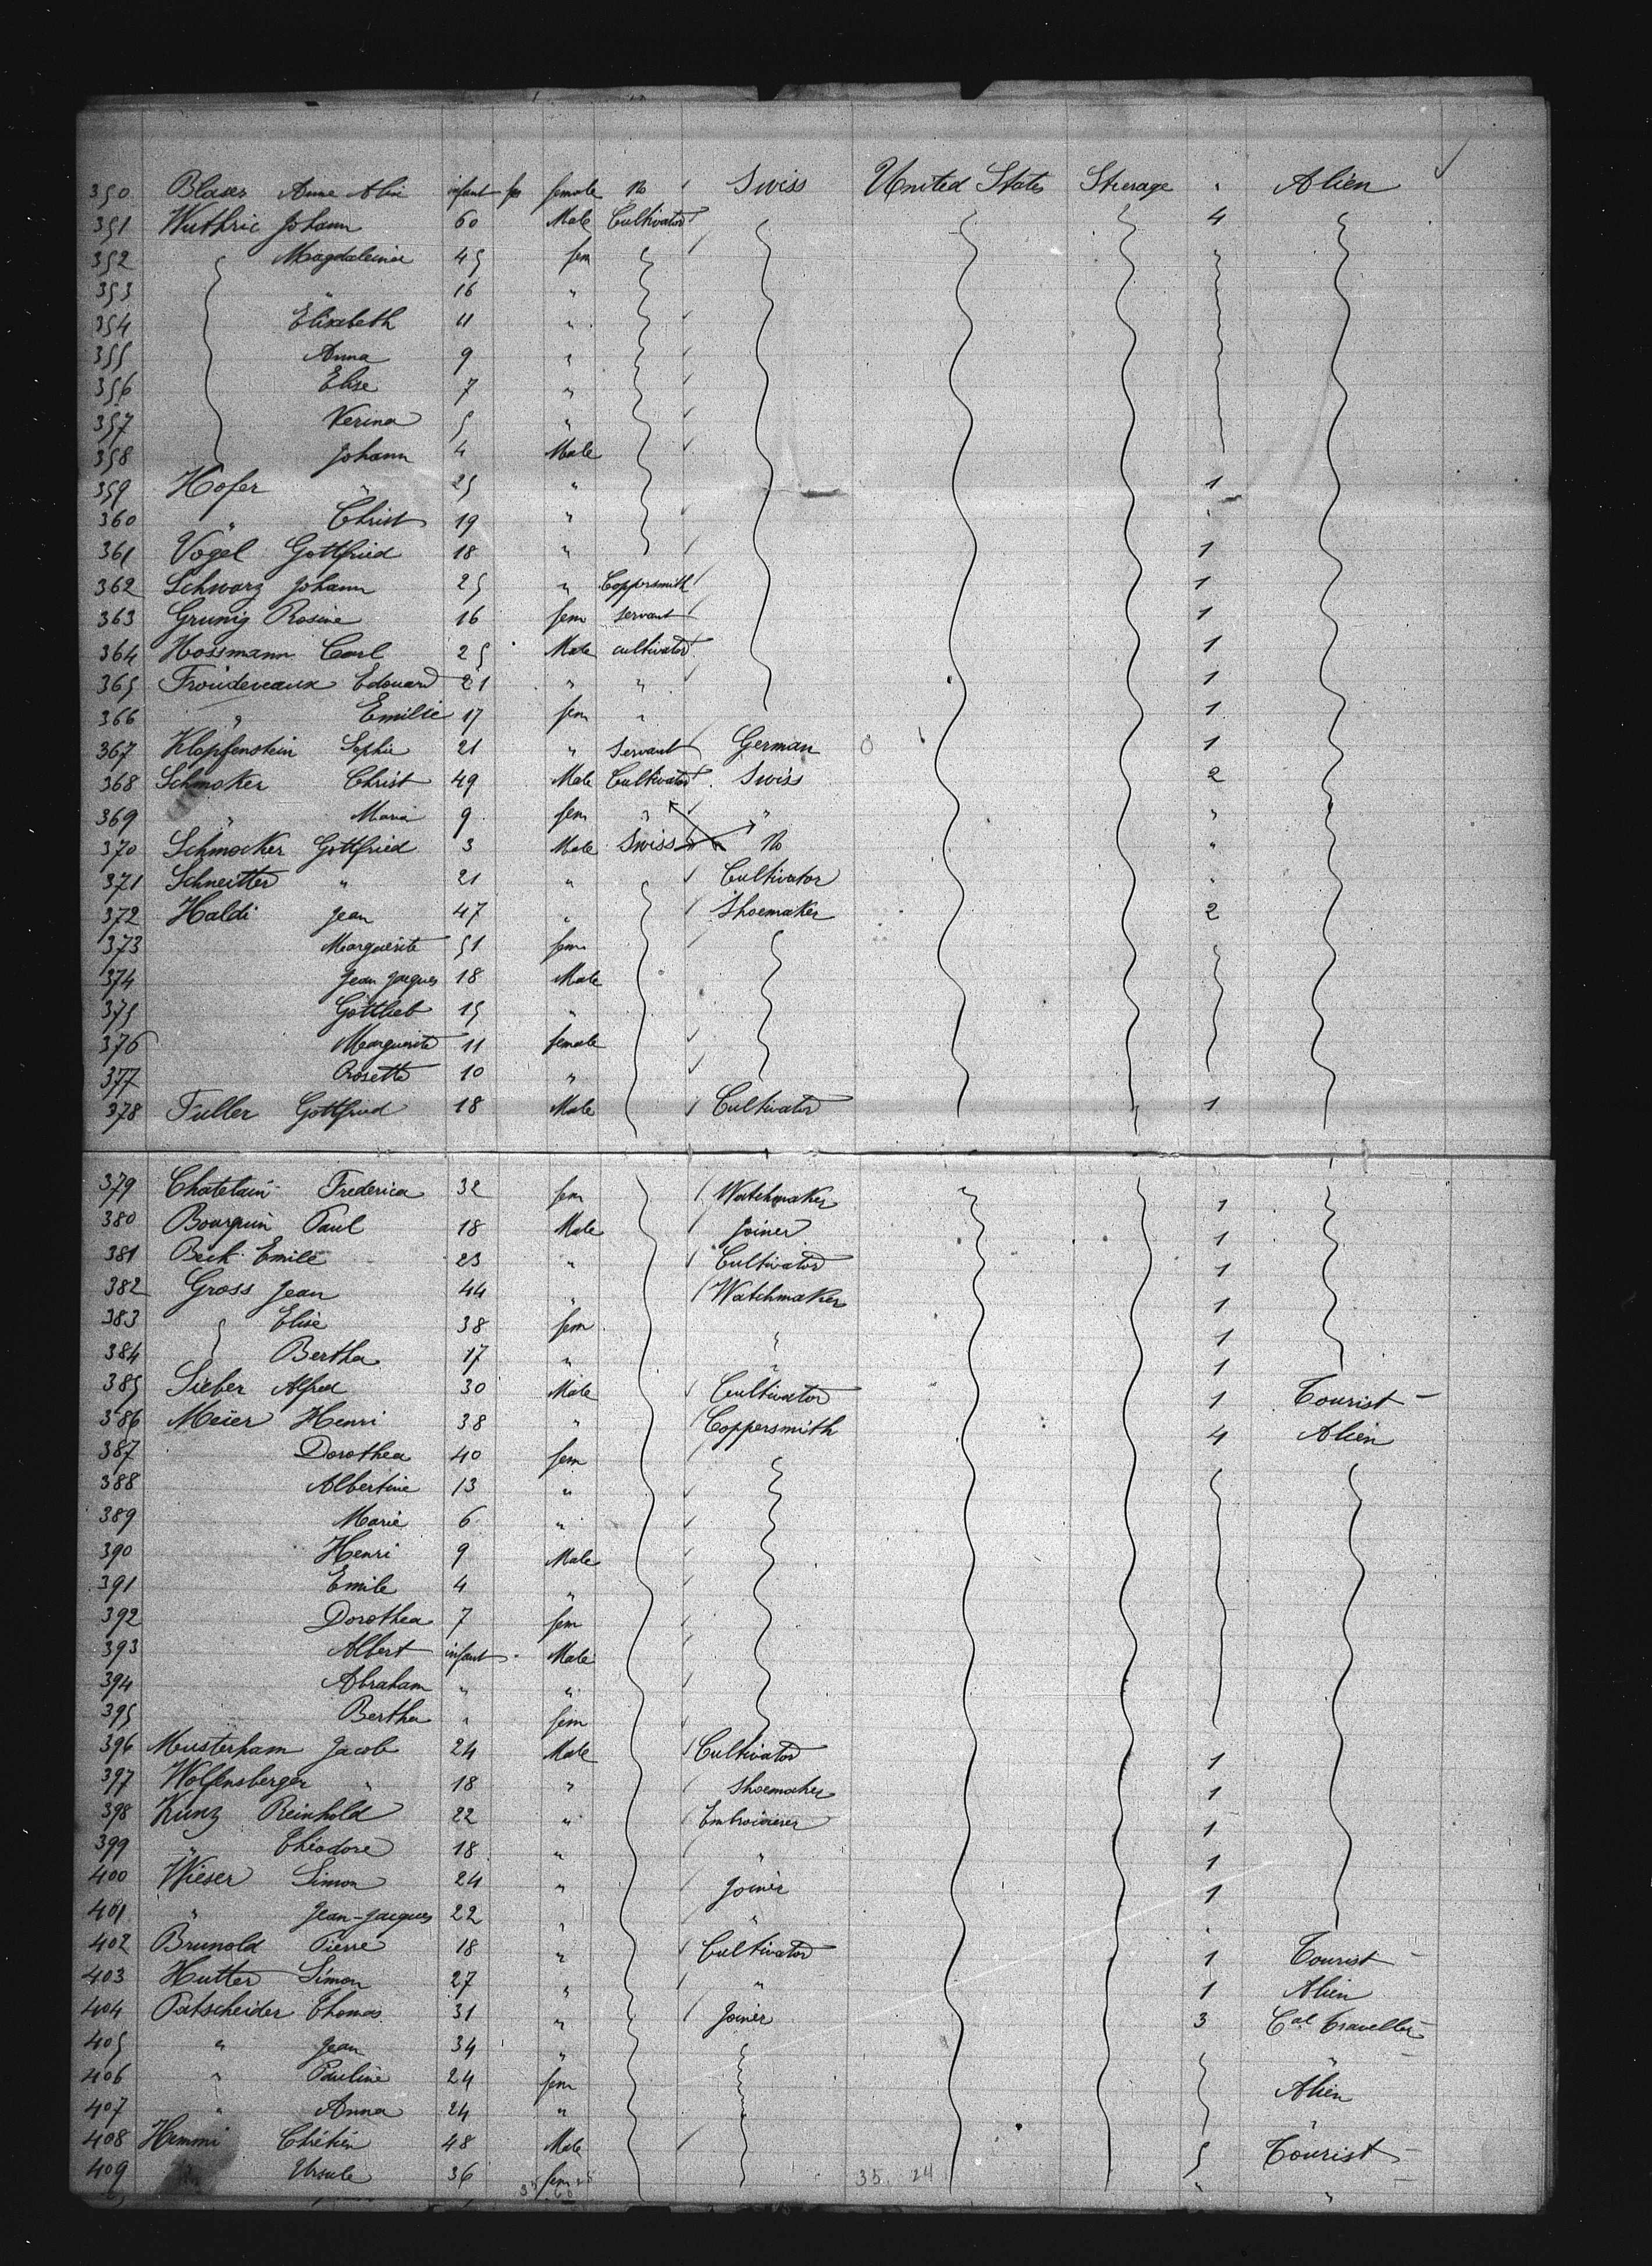 350 Blaser Anne Alin infant female No Swiss United States Sterage " Alien
351 Wuthric Johann 60 Male Cultivator 4
352 Magdaleina 45 fem
353 " 16 "
354 Elisabeth 11 "
355 Anna 9 "
356 Elise 7 "
357 Verina 5 "
358 Johann 4 Male
359 Hofer " 25 " 1
360 " Christ 19 " "
361 Vogel Gottfried 18 " 1
362 Schwarz Johann 25 " Coppersmith 1
363 Grunig Rosine 16 fem Servant 1
364 Hossmann Carl 25 Male cultivator 1
365 Froideveaux Edouard 21 " " 1
366 " Emilie 17 fem " 1
367 Klopfenstein Sophie 21 " Servant German 1
368 Schmoker Christ 49 Male Cultivator Swiss 2
369 " Maria 9 fem " " "
370 Schmocker Gottfried 3 Male Swiss No "
371 Schneitter " 21 " Cultivator "
372 Haldi Jean 47 " Shoemaker 2
373 Marguerite 51 fem
374 Jean Jacques 18 Male
375 Gottlieb 15 "
376 Marguerite 11 female
377 Rosette 10 "
378 Fuller Gottfried 18 Male Cultivator 1
379 Chatelain Frederica 32 fem Watchmaker 1
380 Bourquin Paul 18 Male Joiner 1
381 Beck Emile 23 " Cultivator 1
382 Gross Jean 44 " Watchmaker 1
383 Elise 38 fem " 1
384 Bertha 17 " " 1
385 Sieber Alfred 30 Male Cultivator 1 Tourist
386 Meier Henri 38 " Coppersmith 4 Alien
387 Dorothea 40 fem
388 Albertine 13 "
389 Marie 6 "
390 Henri 9 Male
391 Emile 4 "
392 Dorothea 7 fem
393 Albert infant Male
394 Abraham " "
395 Bertha " fem
396 Musterham Jacob 24 Male Cultivator 1
397 Wolfensberger " 18 " Shoemaker 1
398 Kunz Reinhold 22 " Embroiderer 1
399 " Théodore 18 " " 1
400 Wieser Simon 24 " Joiner 1
401 " Jean-Jacques 22 " " "
402 Brunold Pierre 18 " Cultivator 1 Tourist
403 Hutter Simon 27 " " 1 Alien
404 Patscheider Thomas 31 " Joiner 3 Cal traveller
405 " Jean 34 " "
406 " Pauline 24 fem Alien
407 " Anna 24 " "
408 Hemmi Chrétien 48 Male 5 Tourist
409 Ursule 36 fem 35. 24 " "